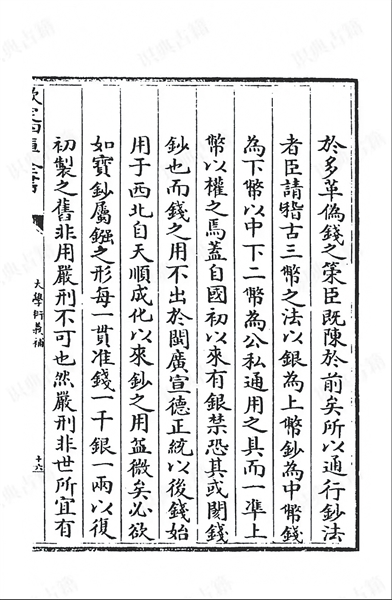 於多革偽錢之䇿臣既陳於前矣所以通行鈔法
者臣請稽古三幣之法以銀為上幣鈔為中幣錢
為下幣以中下二幣為公私通用之具而一準上
幣以權之焉蓋自國初以來有銀禁恐其或閡錢
鈔也而錢之用不出於閩廣宣德正統以後錢始
用于西北自天順成化以來鈔之用益微矣必欲
如寶鈔屬鏹之形每一貫准錢一千銀一兩以復
初製之舊非用嚴刑不可也然嚴刑非世所宜有
欽定四庫全書
大學衍義補
十六